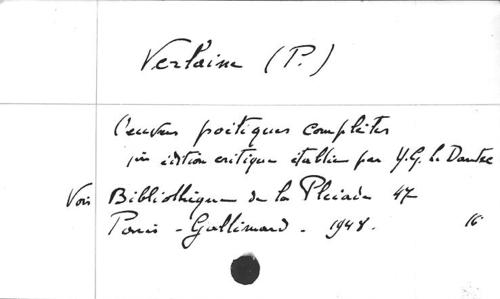 Verlaine (P.)
Oeuvres poétiques complètes
1ère édition critique établie par Y.G. le Dantec
Voir Bibliothèque de la Pleiade 47
Paris - Gallimard - 1948. 16